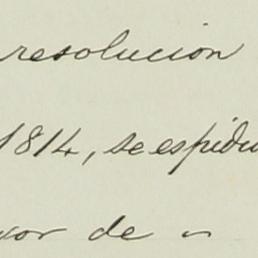 resolucion
1814, se espidi
or de